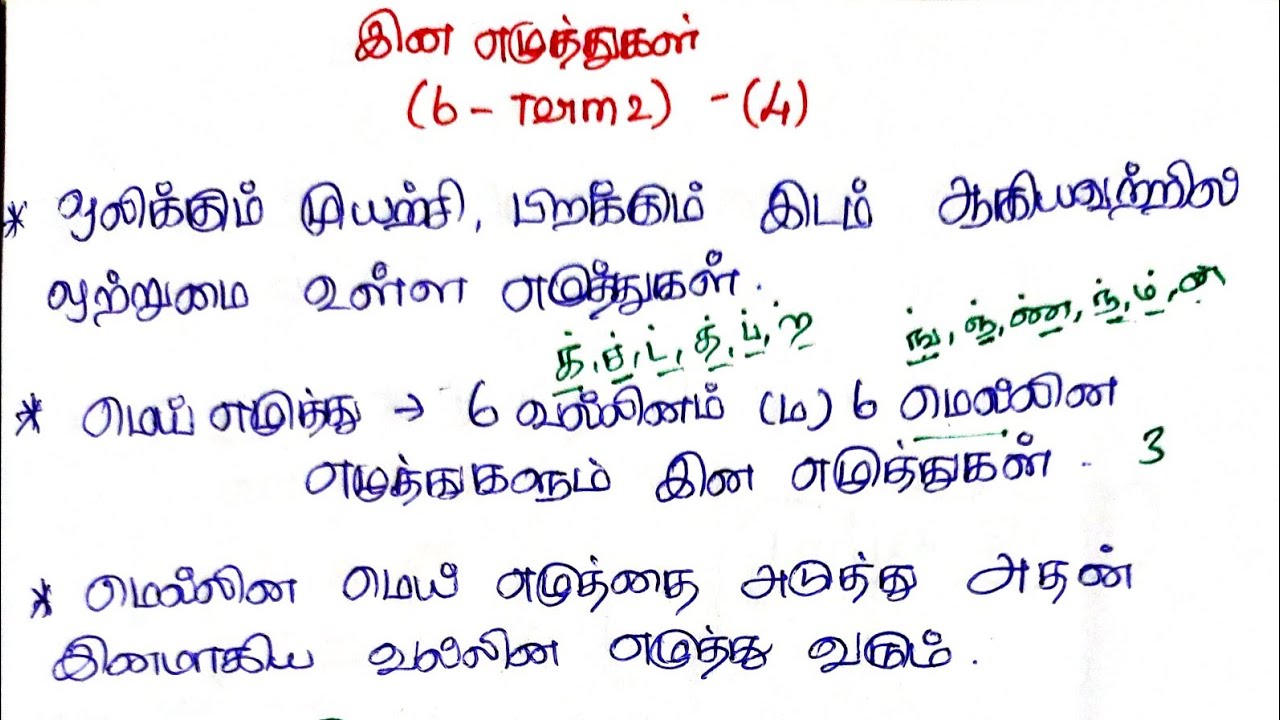 இன எழுத்துகள்
(6 - Term 2) - (4)
* ஒலிக்கும் முயற்சி, பிறக்கும் இடம் ஆகியவற்றில்
ஒற்றுமை உள்ள எழுத்துகள்.
க், ச், ட், த், ப், ற் ங், ஞ், ண், ந், ம், ன்
* மெய் எழுத்து → 6 வல்லினம் (ம) 6 மெல்லின
எழுத்துகளும் இன எழுத்துகள். 3
* மெல்லின மெய் எழுத்தை அடுத்து அதன்
இனமாகிய வல்லின எழுத்து வரும்.